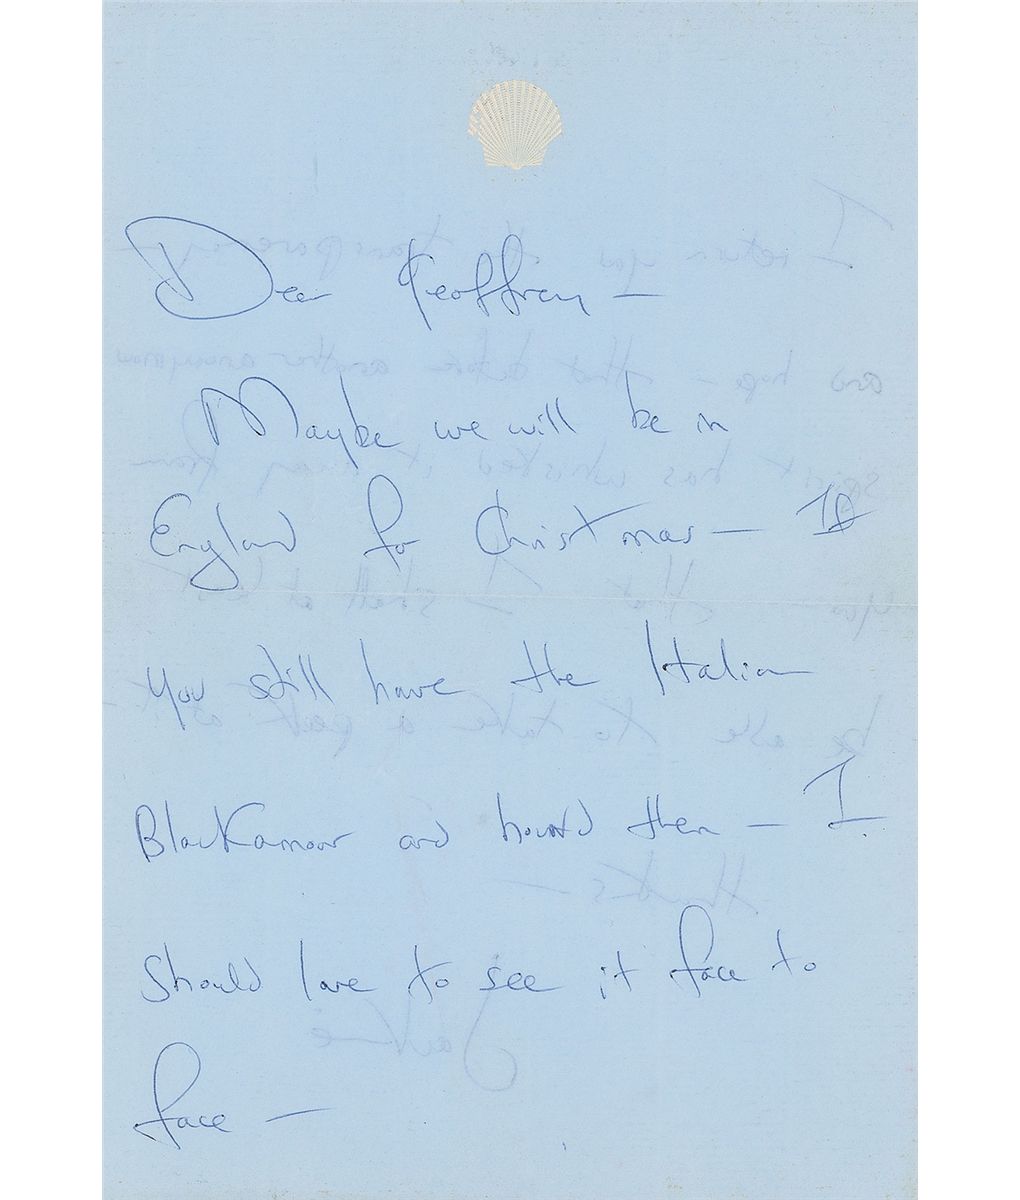 Dear Geoffrey —
Maybe we will be in
England for Christmas — If
you still have the Italian
Blackamoor and hound then — I
should love to see it face to
face —